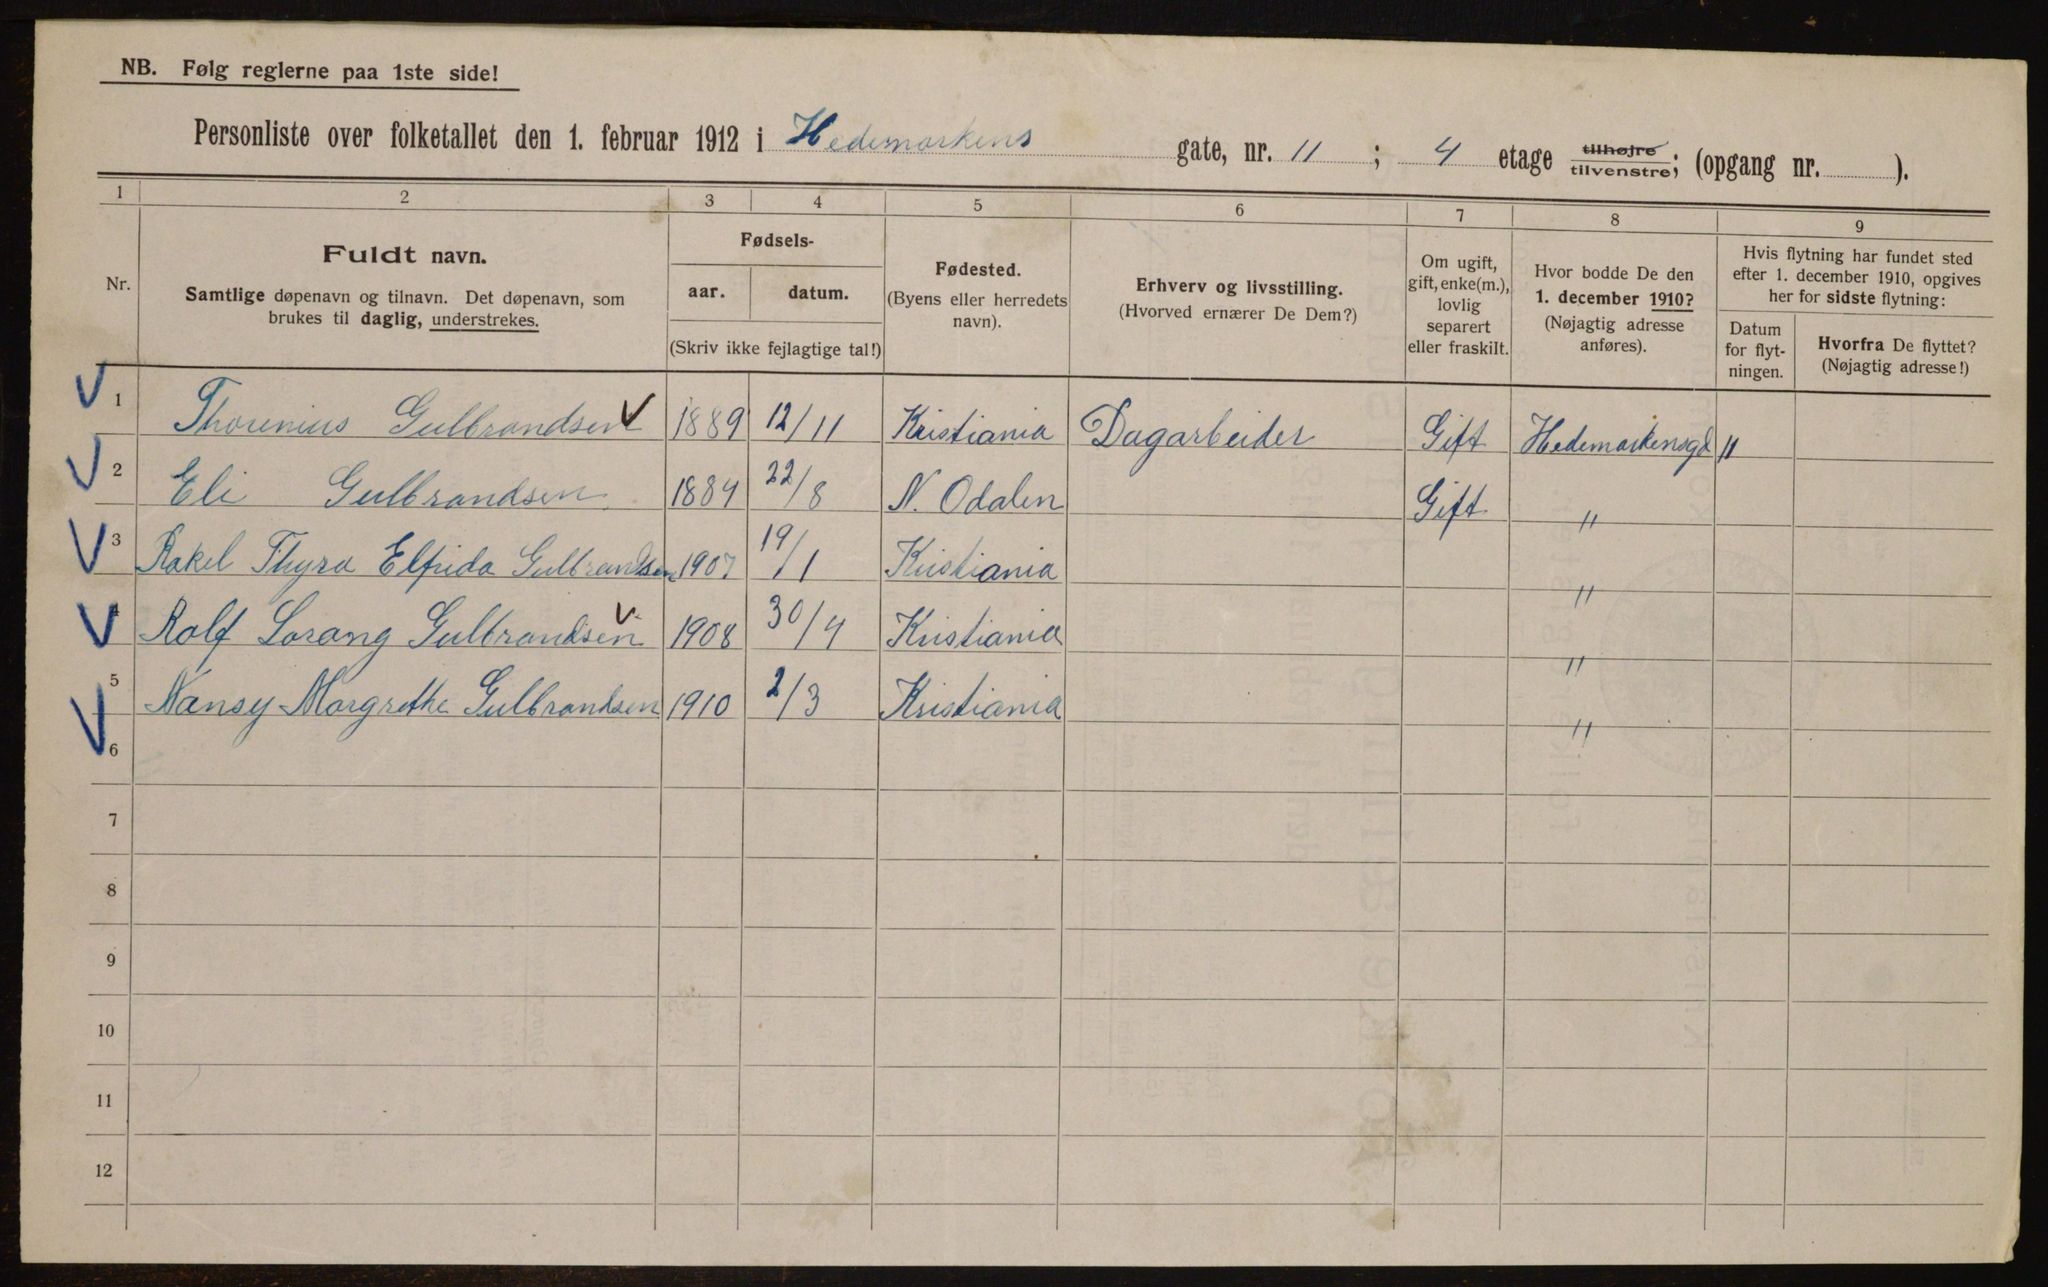 NB. Følg reglerne paa 1ste side!
Personliste over folketallet den 1. februar 1912 i Hedemarkens gate, nr. 11 ; 4 etage tilhøjre/tilvenstre; (opgang nr. ).
1 2 3 4 5 6 7 8 9
Nr.
Fuldt navn.
Samtlige døpenavn og tilnavn. Det døpenavn, som
brukes til daglig, understrekes.
Fødsels-
aar. datum.
(Skriv ikke fejlagtige tal!)
Fødested.
(Byens eller herredets
navn).
Erhverv og livsstilling.
(Hvorved ernærer De Dem?)
Om ugift,
gift, enke(m.),
lovlig
separert
eller fraskilt.
Hvor bodde De den
1. december 1910?
(Nøjagtig adresse
anføres).
Hvis flytning har fundet sted
efter 1. december 1910, opgives
her for sidste flytning:
Datum
for flyt-
ningen.
Hvorfra De flyttet?
(Nøjagtig adresse!)
1 Thorenius Gulbrandsen 1889 12/11 Kristiania Dagarbeider Gift Hedemarkensgd 11
2 Eli Gulbrandsen 1884 22/8 N. Odalen Gift "
3 Rakel Thyra Elfrida Gulbrandsen 1907 19/1 Kristiania "
4 Rolf Lorang Gulbrandsen 1908 30/4 Kristiania "
5 Nansy Margrethe Gulbrandsen 1910 2/3 Kristiania "
6
7
8
9
10
11
12